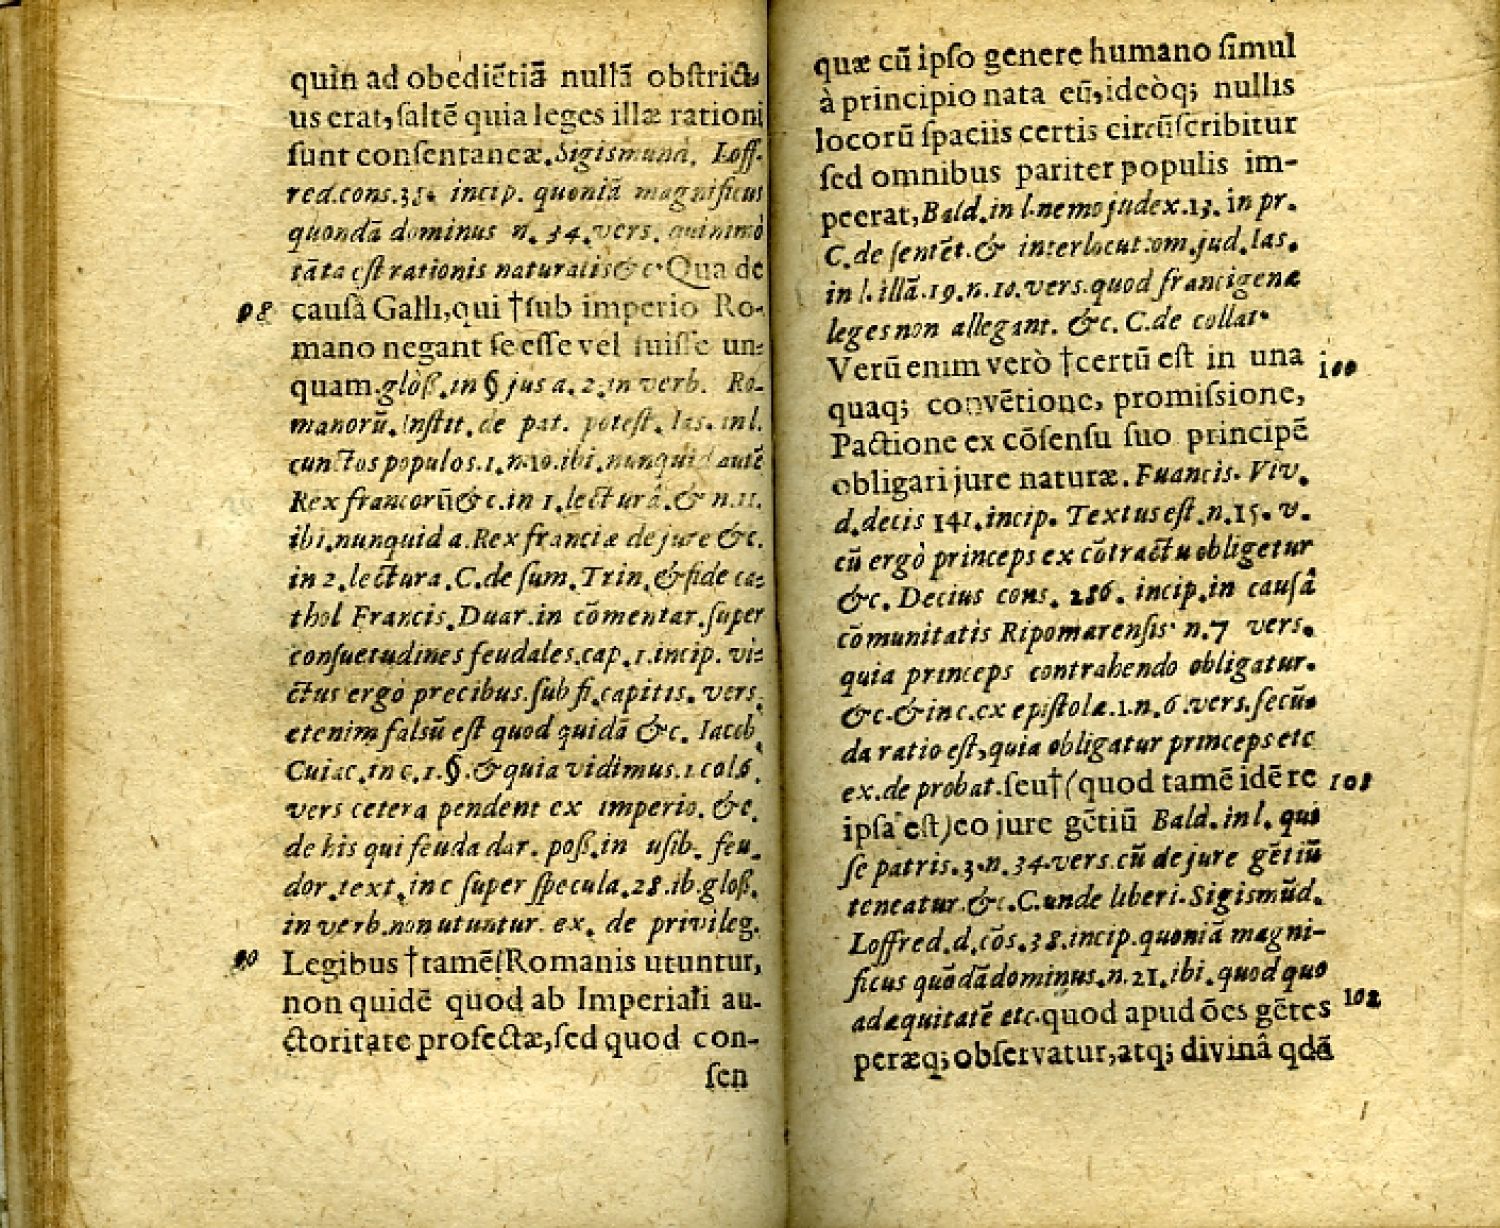 quin ad obediẽtiã nullã obstrict-
us erat, saltẽ quia leges illæ rationi
sunt consentaneæ. Sigismund. Loff-
red. cons. 38. incip. quoniã magnificus
quondã dominus n. 34. vers. quinimò
tãta est rationis naturalis &c. Qua de
98 causâ Galli, qui † sub imperio Ro-
mano negant se esse vel fuisse un-
quam. gloß. in § jus a. 2. in verb. Ro-
manorũ. Instit. de pat. potest. Ias. in l.
cunctos populos. 1. n. 10. ibi. nunquid autẽ
Rex francorũ &c. in 1. lecturâ. & n. 11.
ibi. nunquid a. Rex franciæ de jure &c.
in 2. lectura. C. de sum. Trin. & fide ca-
thol Francis. Duar. in cõmentar. super
consuetudines feudales. cap. 1. incip. vi-
ctus ergò precibus. sub fi. capitis. vers.
etenim falsũ est quod quidã &c. Iacob.
Cuiac. in c. 1. §. & quia vidimus. 1 col 6.
vers cetera pendent ex imperio. &c.
de his qui feuda dar. poß. in usib. feu.
dor. text. in c super specula. 28. ib. gloß.
in verb. non utuntur. ex. de privileg.
90 Legibus † tamẽ Romanis utuntur,
non quidẽ quod ab Imperiali au-
ctoritate profectæ, sed quod con-
sen
quæ cũ ipso genere humano simul
à principio nata eũ, ideòq; nullis
locorũ spaciis certis circũscribitur
sed omnibus pariter populis im-
peerat, Bald. in l. nemo judex. 13. in pr.
C. de sentẽt. & interlocut: om. jud. Ias.
in l. illã. 19. n. 10. vers. quod francigenæ
leges non allegant. &c. C. de collat.
Verũ enim verò † certũ est in una 100
quaq; convẽtione, promissione,
Pactione ex cõsensu suo principẽ
obligari jure naturæ. Fuancis. Viv.
d. decis 141. incip. Textus est. n. 15. v.
cũ ergò princeps ex cõtractu obligetur
&c. Decius cons. 286. incip. in causâ
cõmunitatis Ripomarensis n. 7 vers.
quia princeps contrahendo obligatur.
&c. & in c. ex epistolæ. 1. n. 6. vers. secũ-
da ratio est, quia obligatur princeps etc
ex. de probat. seu † (quod tamẽ idẽ re 101
ipsa est) eo jure gẽtiũ Bald. in l. qui
se patris. 3. n. 34. vers. cũ de jure gẽtiũ
teneatur. &c. C. unde liberi. Sigismũd.
Loffred. d. cõs. 38. incip. quoniã magni-
ficus quõdã dominus. n. 21. ibi. quod quo
ad æquitatẽ etc. quod apud ões gẽtes 102
peræq; observatur, atq; divinâ qdã